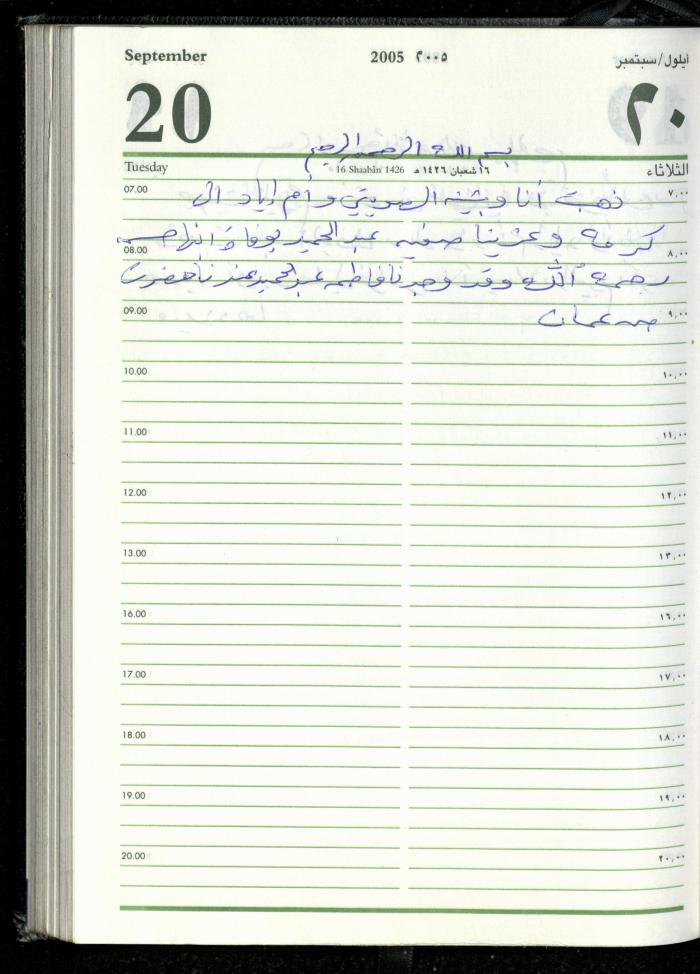 September 2005 ٢٠٠٥ أيلول/سبتمبر
20 ٢٠
بسم الله الرحمن الرحيم
Tuesday 16 Shaabân 1426 ١٦ شعبان ١٤٢٦ هـ الثلاثاء
07.00 ذهبت أنا وبثينه الصويتي وأم إياد ال ٧,٠٠
كرمه وعزينا صفيه عبد الحميد بوفاة
08.00 ٨,٠٠
رحمه الله وقد وجدنا فاطمه عبد الحميد عندنا حضرت
09.00 ٩,٠٠
من عمان
10.00 ١٠,٠٠
11.00 ١١,٠٠
12.00 ١٢,٠٠
13.00 ١٣,٠٠
16.00 ١٦,٠٠
17.00 ١٧,٠٠
18.00 ١٨,٠٠
19.00 ١٩,٠٠
20.00 ٢٠,٠٠